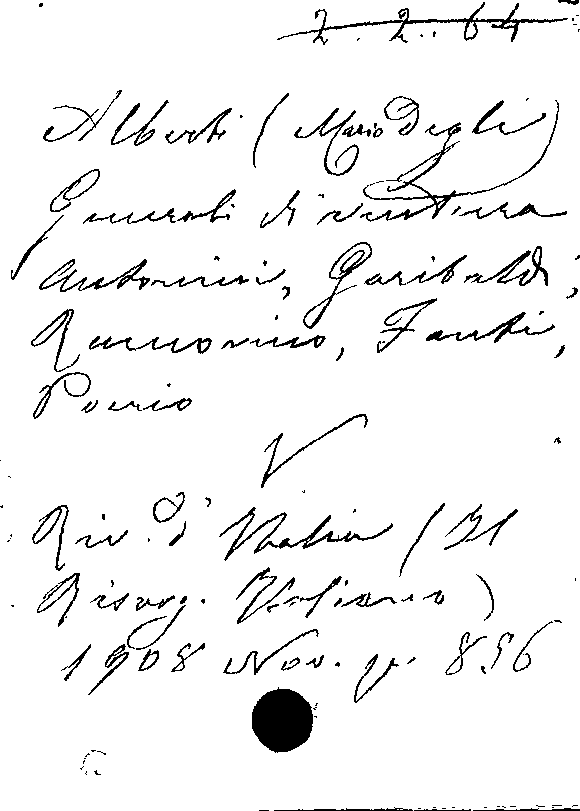 2. 2. 64
Alberti (Mario Degli)
Generali di ventura
Antonini, Garibaldi,
Ramorino, Fanti,
Poerio
V
Riv. d'Italia (Il
Risorg. Italiano)
1908 Nov. p. 856